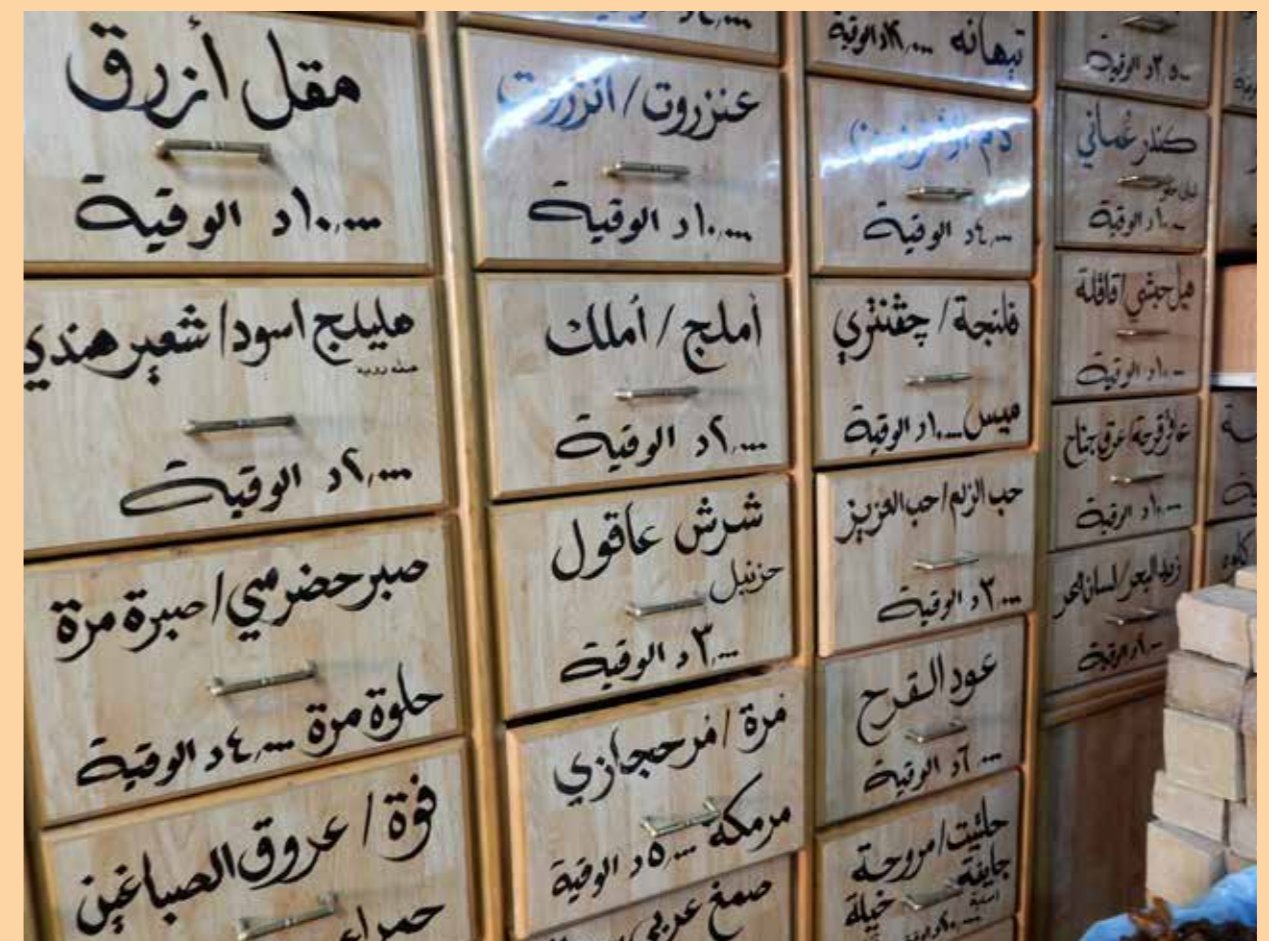 مقل أزرق
١٠,٠٠٠د الوقية
هليلج اسود/شعير هندي
٢,٠٠٠د الوقية
صبر حضرمي/صبرة مرة
حلوة مرة ٤,٠٠٠د الوقية
فوة/عروق الصباغين
عنزروت/انزروت
١٠,٠٠٠د الوقية
أملج/أملك
٢,٠٠٠د الوقية
شرش عاقول
حزنبل
٣,٠٠٠د الوقية
مرة/مرحجازي
مرمكة ٥,٠٠٠د الوقية
صمغ عربي
تيهانه
الوقية
دم
٤,٠٠٠د الوقية
فلنجة/چقنتري
ميس ١٠,٠٠٠د الوقية
حب الزلم/حب العزيز
٣,٠٠٠د الوقية
عود القرح
٦,٠٠٠د الوقية
حلتيت/مروحة
جايفة
خيلة
الوقية
كندر عُماني
١٠,٠٠٠د الوقية
هيل حبشي/قاقلة
١٠,٠٠٠د الوقية
عاقرقرحة/عرقي جناح
١٠,٠٠٠د الوقية
زبد البحر/لسان البحر
الوقية